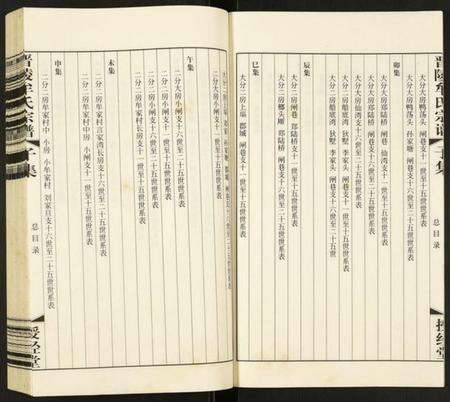 晋陵牟氏宗谱 子集
总目录
授经堂
卯集
大分大房鸭荡头 闸巷支十一世至十五世世系表
大分大房鸭荡头 孙家墩 闸巷支十六世至二十五世世系表
大分大房郑陆桥 闸巷 仙湾支十一世至十五世世系表
大分大房郑陆桥 闸巷支十六世至二十五世世系表
大分大房仙湾支十六世至二十五世世系表
大分二房船底湾 狄墅 李家头 闸巷支十一世至十五世世系表
大分二房船底湾 狄墅 李家头 闸巷支十六世至二十五世世系表
辰集
大分二房闸巷 郑陆桥支十一世至十五世世系表
大分二房乡头 郑陆桥 闸巷支十六世至二十五世世系表
大分二房上塥 都城 闸巷支十一世至十五世世系表
巳集
午集
大分大房小闸支十一世至十五世世系表
大分大房小闸支十六世至二十五世世系表
二分二房小闸支十一世至十五世世系表
二分二房牟家村长房支十六世至二十五世世系表
未集
二分二房牟家村言家湾长房支十六世至二十五世世系表
二分二房牟家村中房 小闸支十一世至十五世世系表
申集
二分二房牟家村中 小房 小牟家村 刘家旦支十六世至二十五世世系表
总目录
晋陵牟氏宗谱 子集
授经堂